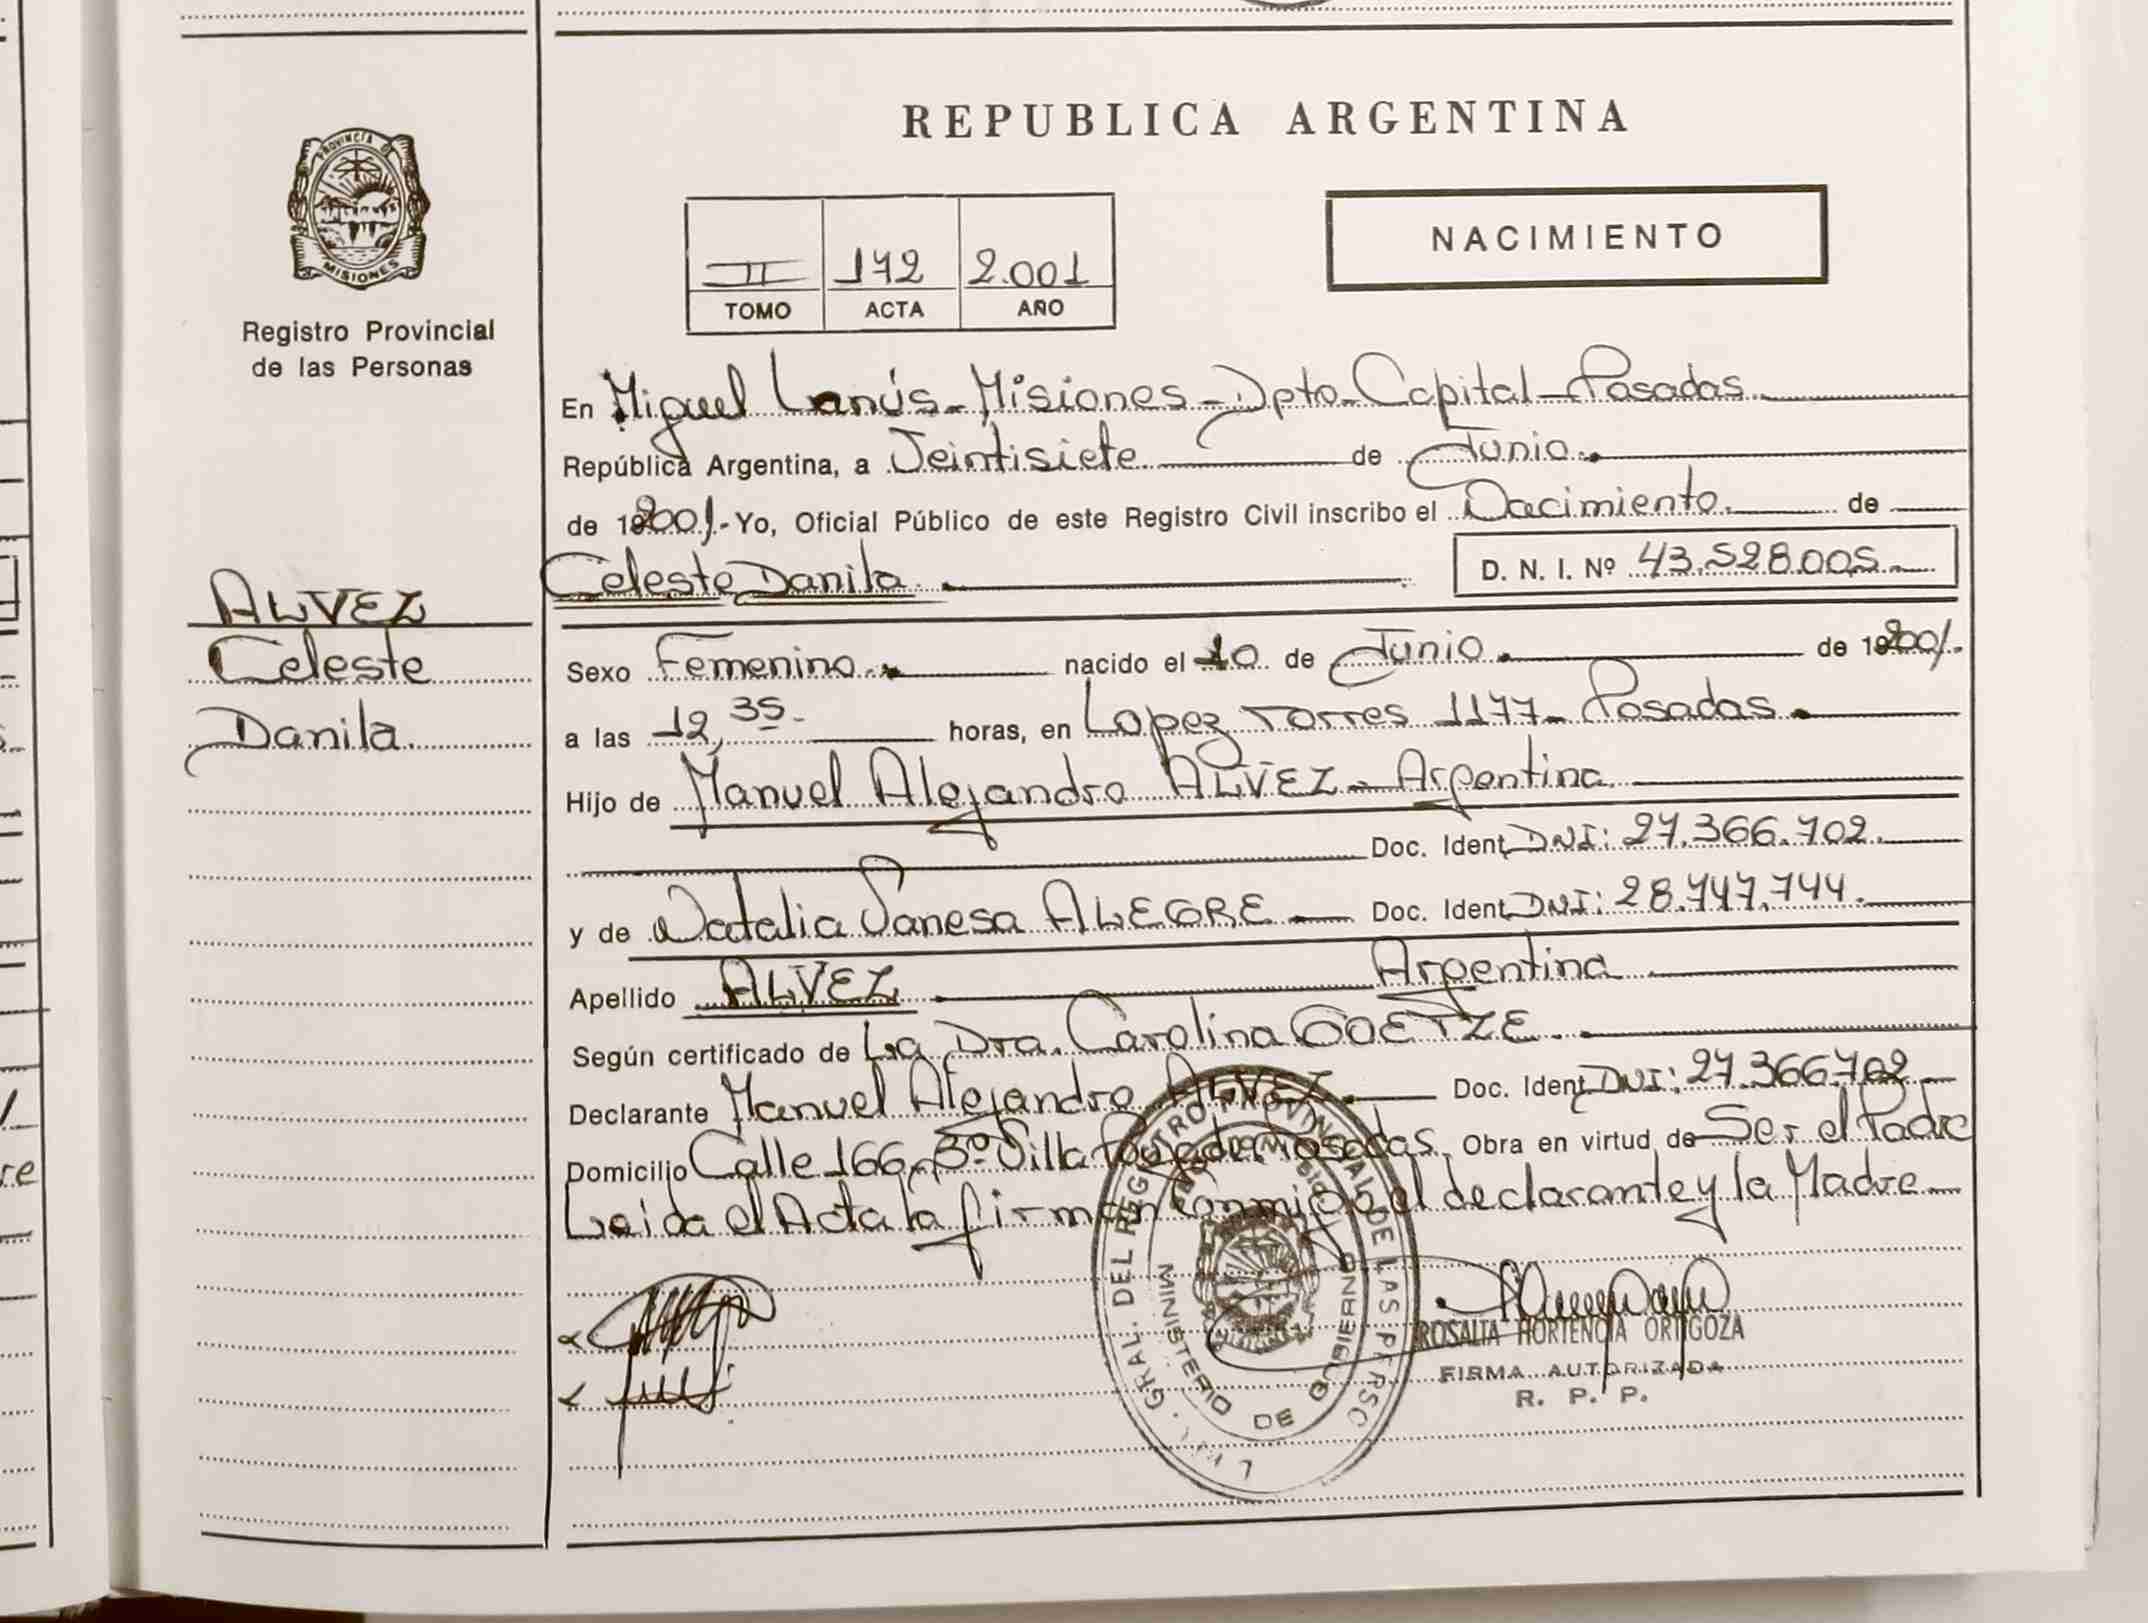 PROVINCIA DE
MISIONES
Registro Provincial
de las Personas
ALVEZ
Celeste
Danila
REPUBLICA ARGENTINA
II 172 2.001
TOMO ACTA AÑO
NACIMIENTO
En Miguel Lanús - Misiones - Dpto - Capital - Posadas
República Argentina, a Veintisiete de Junio
de 2001.- Yo, Oficial Público de este Registro Civil inscribo el Nacimiento. de
Celeste Danila D. N. I. Nº 43.528.005
Sexo Femenino. nacido el 10 de Junio de 2001.
a las 12,35 horas, en Lopez Torres 1177 - Posadas.
Hijo de Manuel Alejandro ALVEZ - Argentina
Doc. Ident DNI: 27.366.702.
y de Natalia Vanesa ALEGRE - Doc. Ident DNI: 28.747.744.
Apellido ALVEZ Argentina
Según certificado de La Dra. Carolina GOETZE.
Declarante Manuel Alejandro ALVEZ. Doc. Ident DNI: 27.366.702
Domicilio Calle 166, 3º Villa Posadas. Obra en virtud de Ser el Padre
Leida el Acta la firman conmigo el declarante y la Madre
GRAL. DEL REGISTRO PROVINCIAL DE LAS PERSO
MINISTERIO DE GOBIERNO
ROSALIA HORTENCIA ORTIGOZA
FIRMA AUTORIZADA
R. P. P.